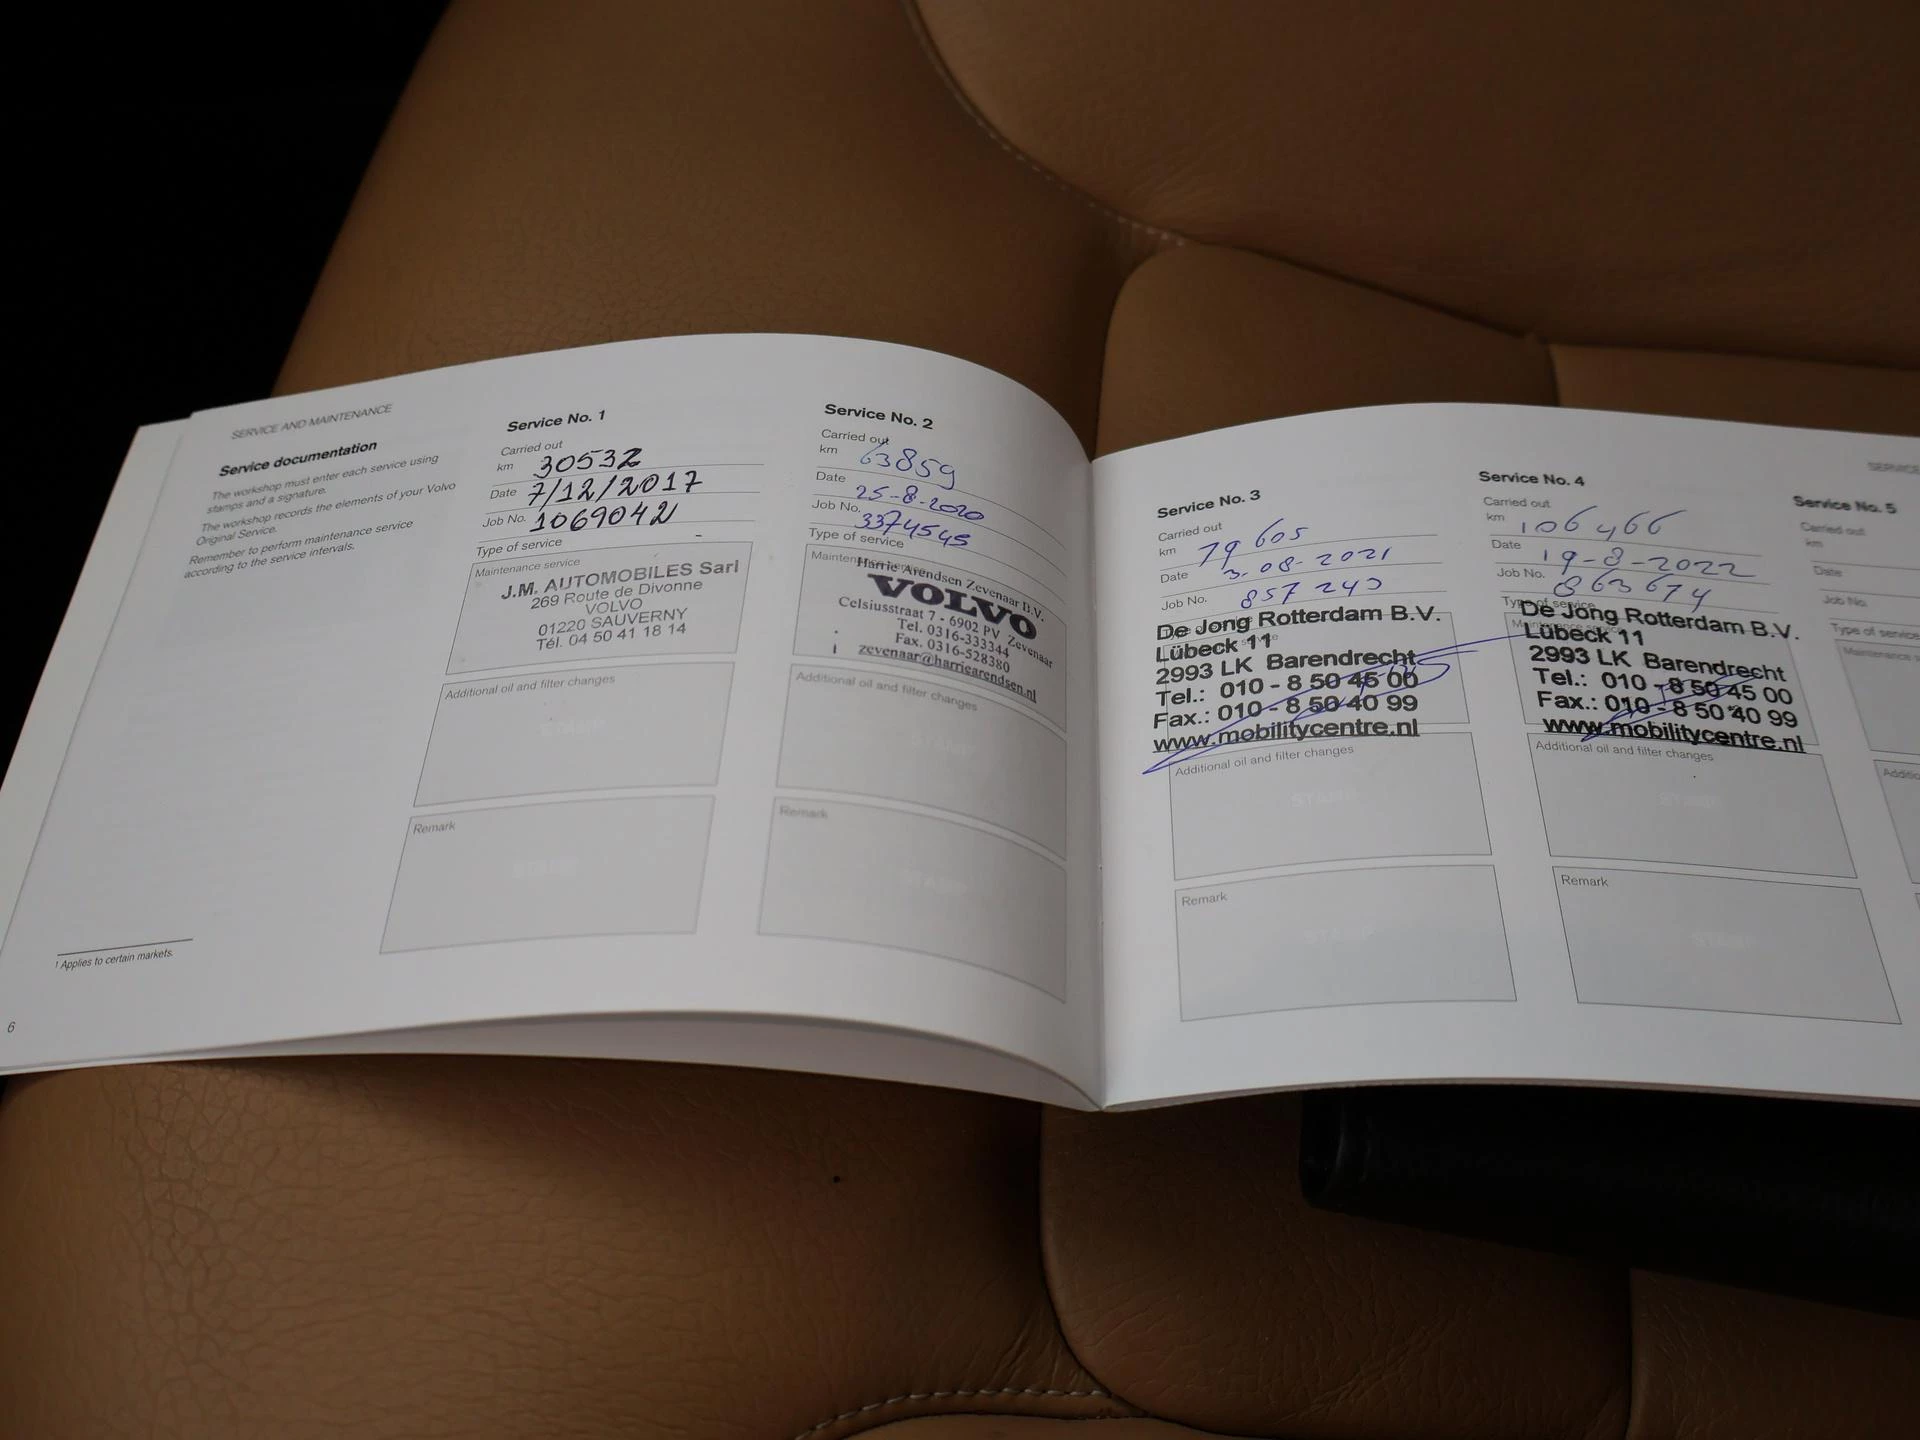 SERVICE AND MAINTENANCE
Service documentation
The workshop must enter each service using
stamps and a signature.
The workshop records the elements of your Volvo
Original Service.
Remember to perform maintenance service
according to the service intervals.
1 Applies to certain markets.
6
Service No. 1
Carried out
km 30532
Date 7/12/2017
Job No. 1069042
Type of service
Maintenance service
J.M. AUTOMOBILES Sarl
269 Route de Divonne
VOLVO
01220 SAUVERNY
Tél. 04 50 41 18 14
Additional oil and filter changes
STAMP
Remark
STAMP
Service No. 2
Carried out
km 63859
Date 25-8-2020
Job No. 3374545
Type of service
Maintenance service
Harrie Arendsen Zevenaar B.V.
VOLVO
Celsiusstraat 7 - 6902 PV Zevenaar
Tel. 0316-333344
Fax. 0316-528380
zevenaar@harriearendsen.nl
Additional oil and filter changes
STAMP
Remark
STAMP
Service No. 3
Carried out
km 79605
Date 3-08-2021
Job No. 857243
De Jong Rotterdam B.V.
Lübeck 11
2993 LK Barendrecht
Tel.: 010 - 8 50 45 00
Fax.: 010 - 8 50 40 99
www.mobilitycentre.nl
Additional oil and filter changes
STAMP
Remark
STAMP
Service No. 4
Carried out
km 106466
Date 19-8-2022
Job No. 863674
Type of service
De Jong Rotterdam B.V.
Lübeck 11
2993 LK Barendrecht
Tel.: 010 - 8 50 45 00
Fax.: 010 - 8 50 40 99
www.mobilitycentre.nl
Additional oil and filter changes
STAMP
Remark
STAMP
SERVICE
Service No. 5
Carried out
km
Date
Job No.
Type of service
Maintenance